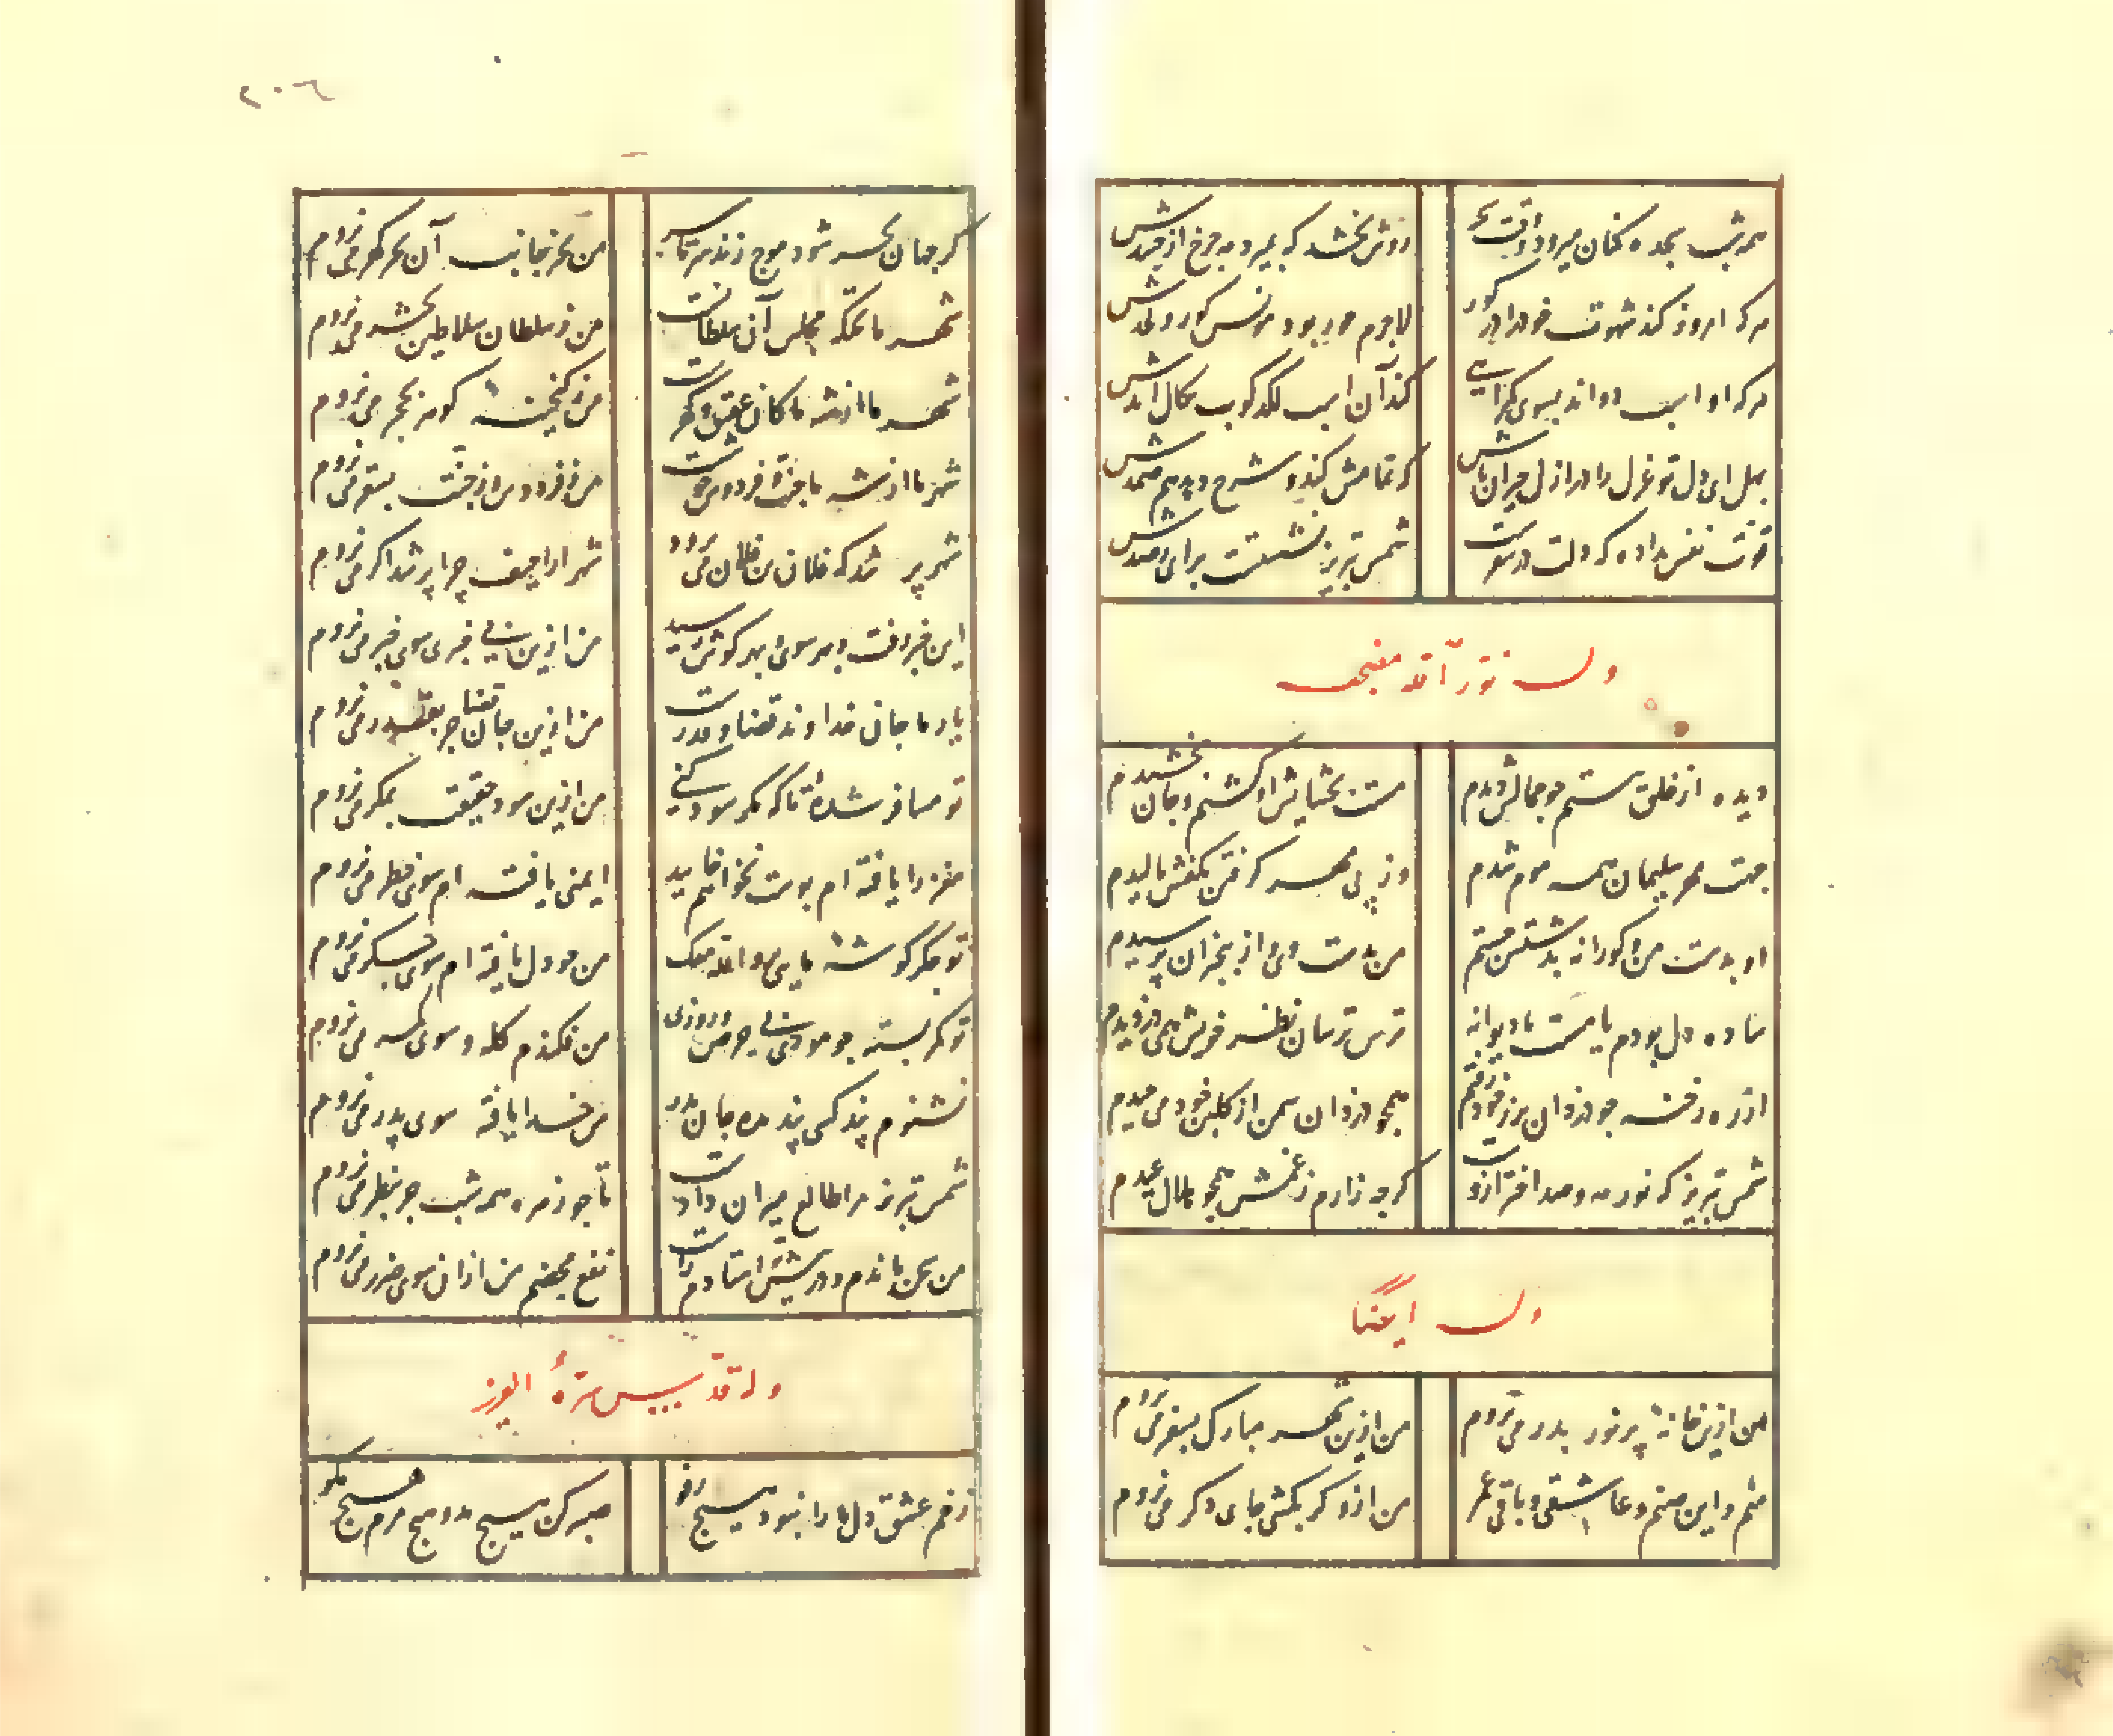 همه شب سجده کنان میرود و وقت سحر
روش بخشد که بمیرد مه چرخ از حسدش
هر که امروز کند شهوت خود را در گور
لاجرم حور بود مونس گور و لحدش
هر که او اسب دواند بسوی گمراهی
کند آن اسب لگدکوب نکال ابدش
بهل ای دل تو غزل را در ازل حیران باش
که تمامش کند و شرح دهد هم صمدش
قوت نفس مداده که دلت
شمس تبریز نشستت برای
وله نور الله مضجعه
دیده از خلق ببستم چو جمالش دیدم
مست بخشایش او گشتم و جان بخشیدم
جهت مهر سلیمان همه موم شدم
وز پی مهر گرفتن بکفش مالیدم
او بدست من و کورانه بدستش جستم
من بدست وی و از بیخبران پرسیدم
ساده دل بودم یا مست یا دیوانه
ترس ترسان ز زر خویش همی دزدیدم
از ره رخنه چو دزدان برز خود رفتم
همچو دزدان سمن از گلبن خود می چیدم
شمس تبریز که نور مه و صد اختر ازوست
گرچه زارم ز غمش همچو هلال عیدم
وله ایضا
من ازین خانه پرنور بدر می نروم
من ازین شهر مبارک بسفر می نروم
منم و این صنم و عاشقی و باقی عمر
من ازو گر بکشی جای دگر می نروم
۲۰۶
گر جهان بحر شود موج زند سرتاسر
من بجز جانب آن بحر گهر می نروم
شهر ما تختگه مجلس آن سلطانست
من ز سلطان سلاطین بحشر می نروم
شهر ما از شه ما کان عقیق و گهرست
من ز گنجینه گوهر بحجر می نروم
شهر ما از شه ما جنت و فردوس خوشست
من ز فردوس و از جنت بسقر می نروم
شهر پر شد که فلان بن فلان می رود
شهر اراجیف چرا پر شد اگر می نروم
این خبر رفت بهر سوی و بهر گوش رسید
من ازین بی خبری سوی خبر می نروم
یار ما جان خداوند قضا و قدرست
من ازین جان قضا جز بقدر می نروم
تو مسافر شده تا که مگر سود کنی
من ازین سود حقیقت بمگر می نروم
مغز را یافته ام پوست نخواهم خایید
ایمنی یافته ام سوی خطر می نروم
تو جگرگوشه مایی برو الله معک
من چو دل یافته ام سوی جگر می نروم
تو کمر بسته چو موری پی حرص روزی
من فکندم کله و سوی کمر می نروم
نشنوم پند کسی پند مده جان پدر
من خدا یافته سوی پدر می نروم
شمس تبریز مرا طالع میزان دادست
تا چو زهره همه شب جز بطر می نروم
من
نفع محضم من از آن سوی ضرر می نروم
وله قدس سره العزیز
زخم عشق دل ما را نبود هیچ رفو
صبر کن هیچ مدو هیچ مرم هیچ مگو